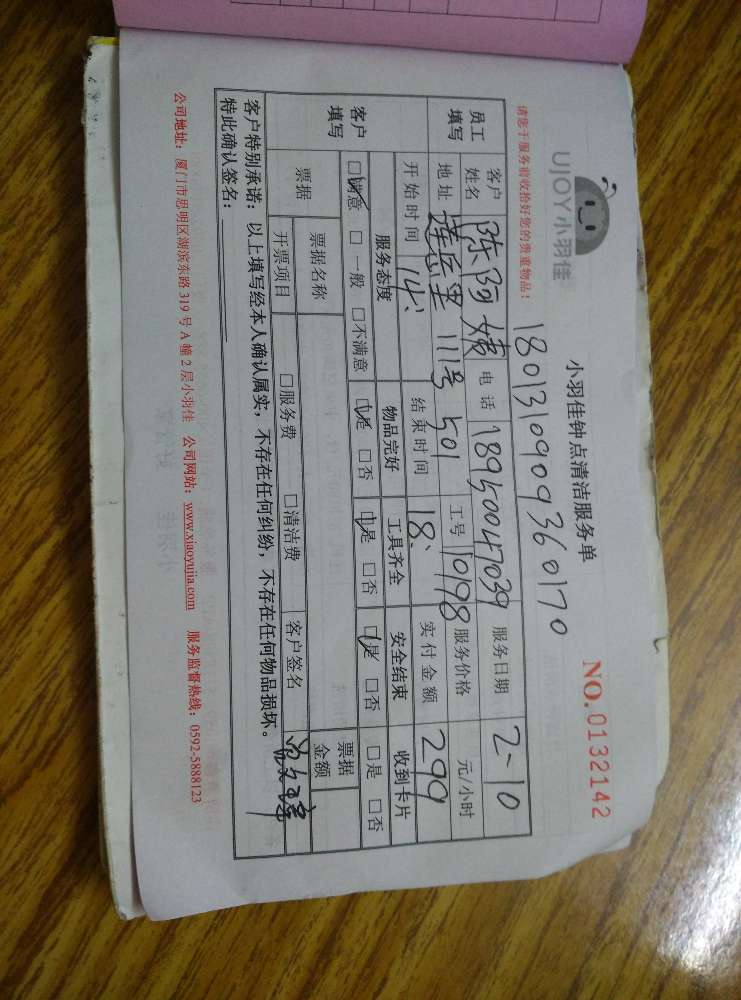 UJOY小羽佳
小羽佳钟点清洁服务单
NO.0132142
1801310909360170
请您于服务前收拾好您的贵重物品！
员工填写 客户姓名 陈阿姨 电话 18950047039 服务日期 2-10
地址 莲岳里111号501 工号 10198 服务价格 元/小时
开始时间 14: 结束时间 18: 实付金额 299
客户填写 服务态度 物品完好 工具齐全 安全结束 收到卡片
□满意 □一般 □不满意 □是 □否 □是 □否 □是 □否 □是 □否
票据 票据名称 票据金额
开票项目 □服务费 □清洁费 客户签名
客户特别承诺：以上填写经本人确认属实，不存在任何纠纷，不存在任何物品损坏。
特此确认签名：
公司地址：厦门市思明区湖滨东路319号A幢2层小羽佳 公司网站：www.xiaoyujia.com 服务监督热线：0592-5888123